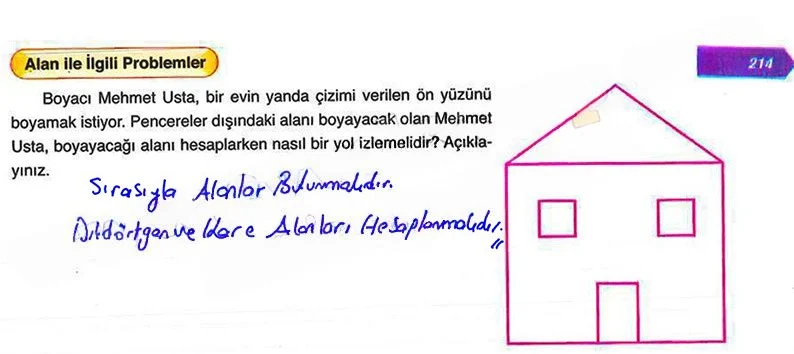 Alan ile İlgili Problemler
214
Boyacı Mehmet Usta, bir evin yanda çizimi verilen ön yüzünü
boyamak istiyor. Pencereler dışındaki alanı boyayacak olan Mehmet
Usta, boyayacağı alanı hesaplarken nasıl bir yol izlemelidir? Açıkla-
yınız.
Sırasıyla Alanlar Bulunmalıdır.
Dikdörtgen ve Kare Alanları Hesaplanmalıdır.